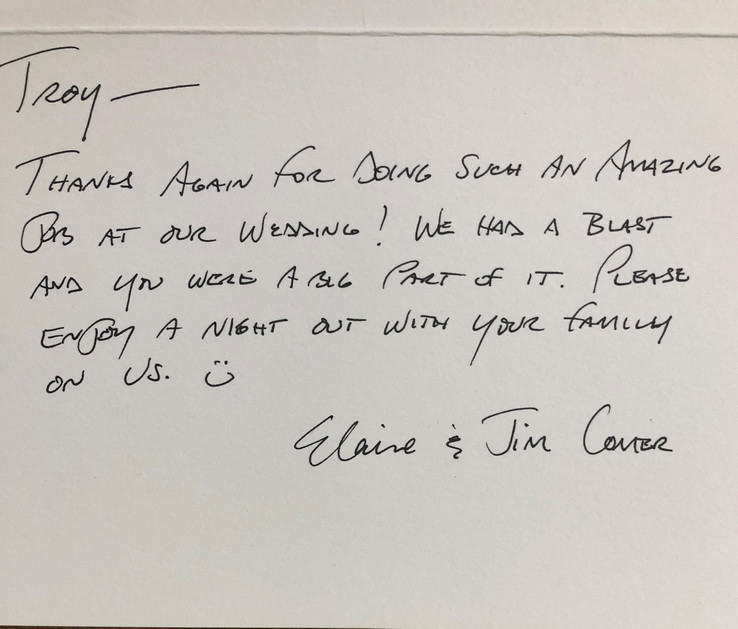 Troy —
Thanks Again for Doing Such an Amazing
Job at our Wedding! We had a Blast
and you were a big part of it. Please
enjoy a night out with your family
on us. ü
Elaine & Jim